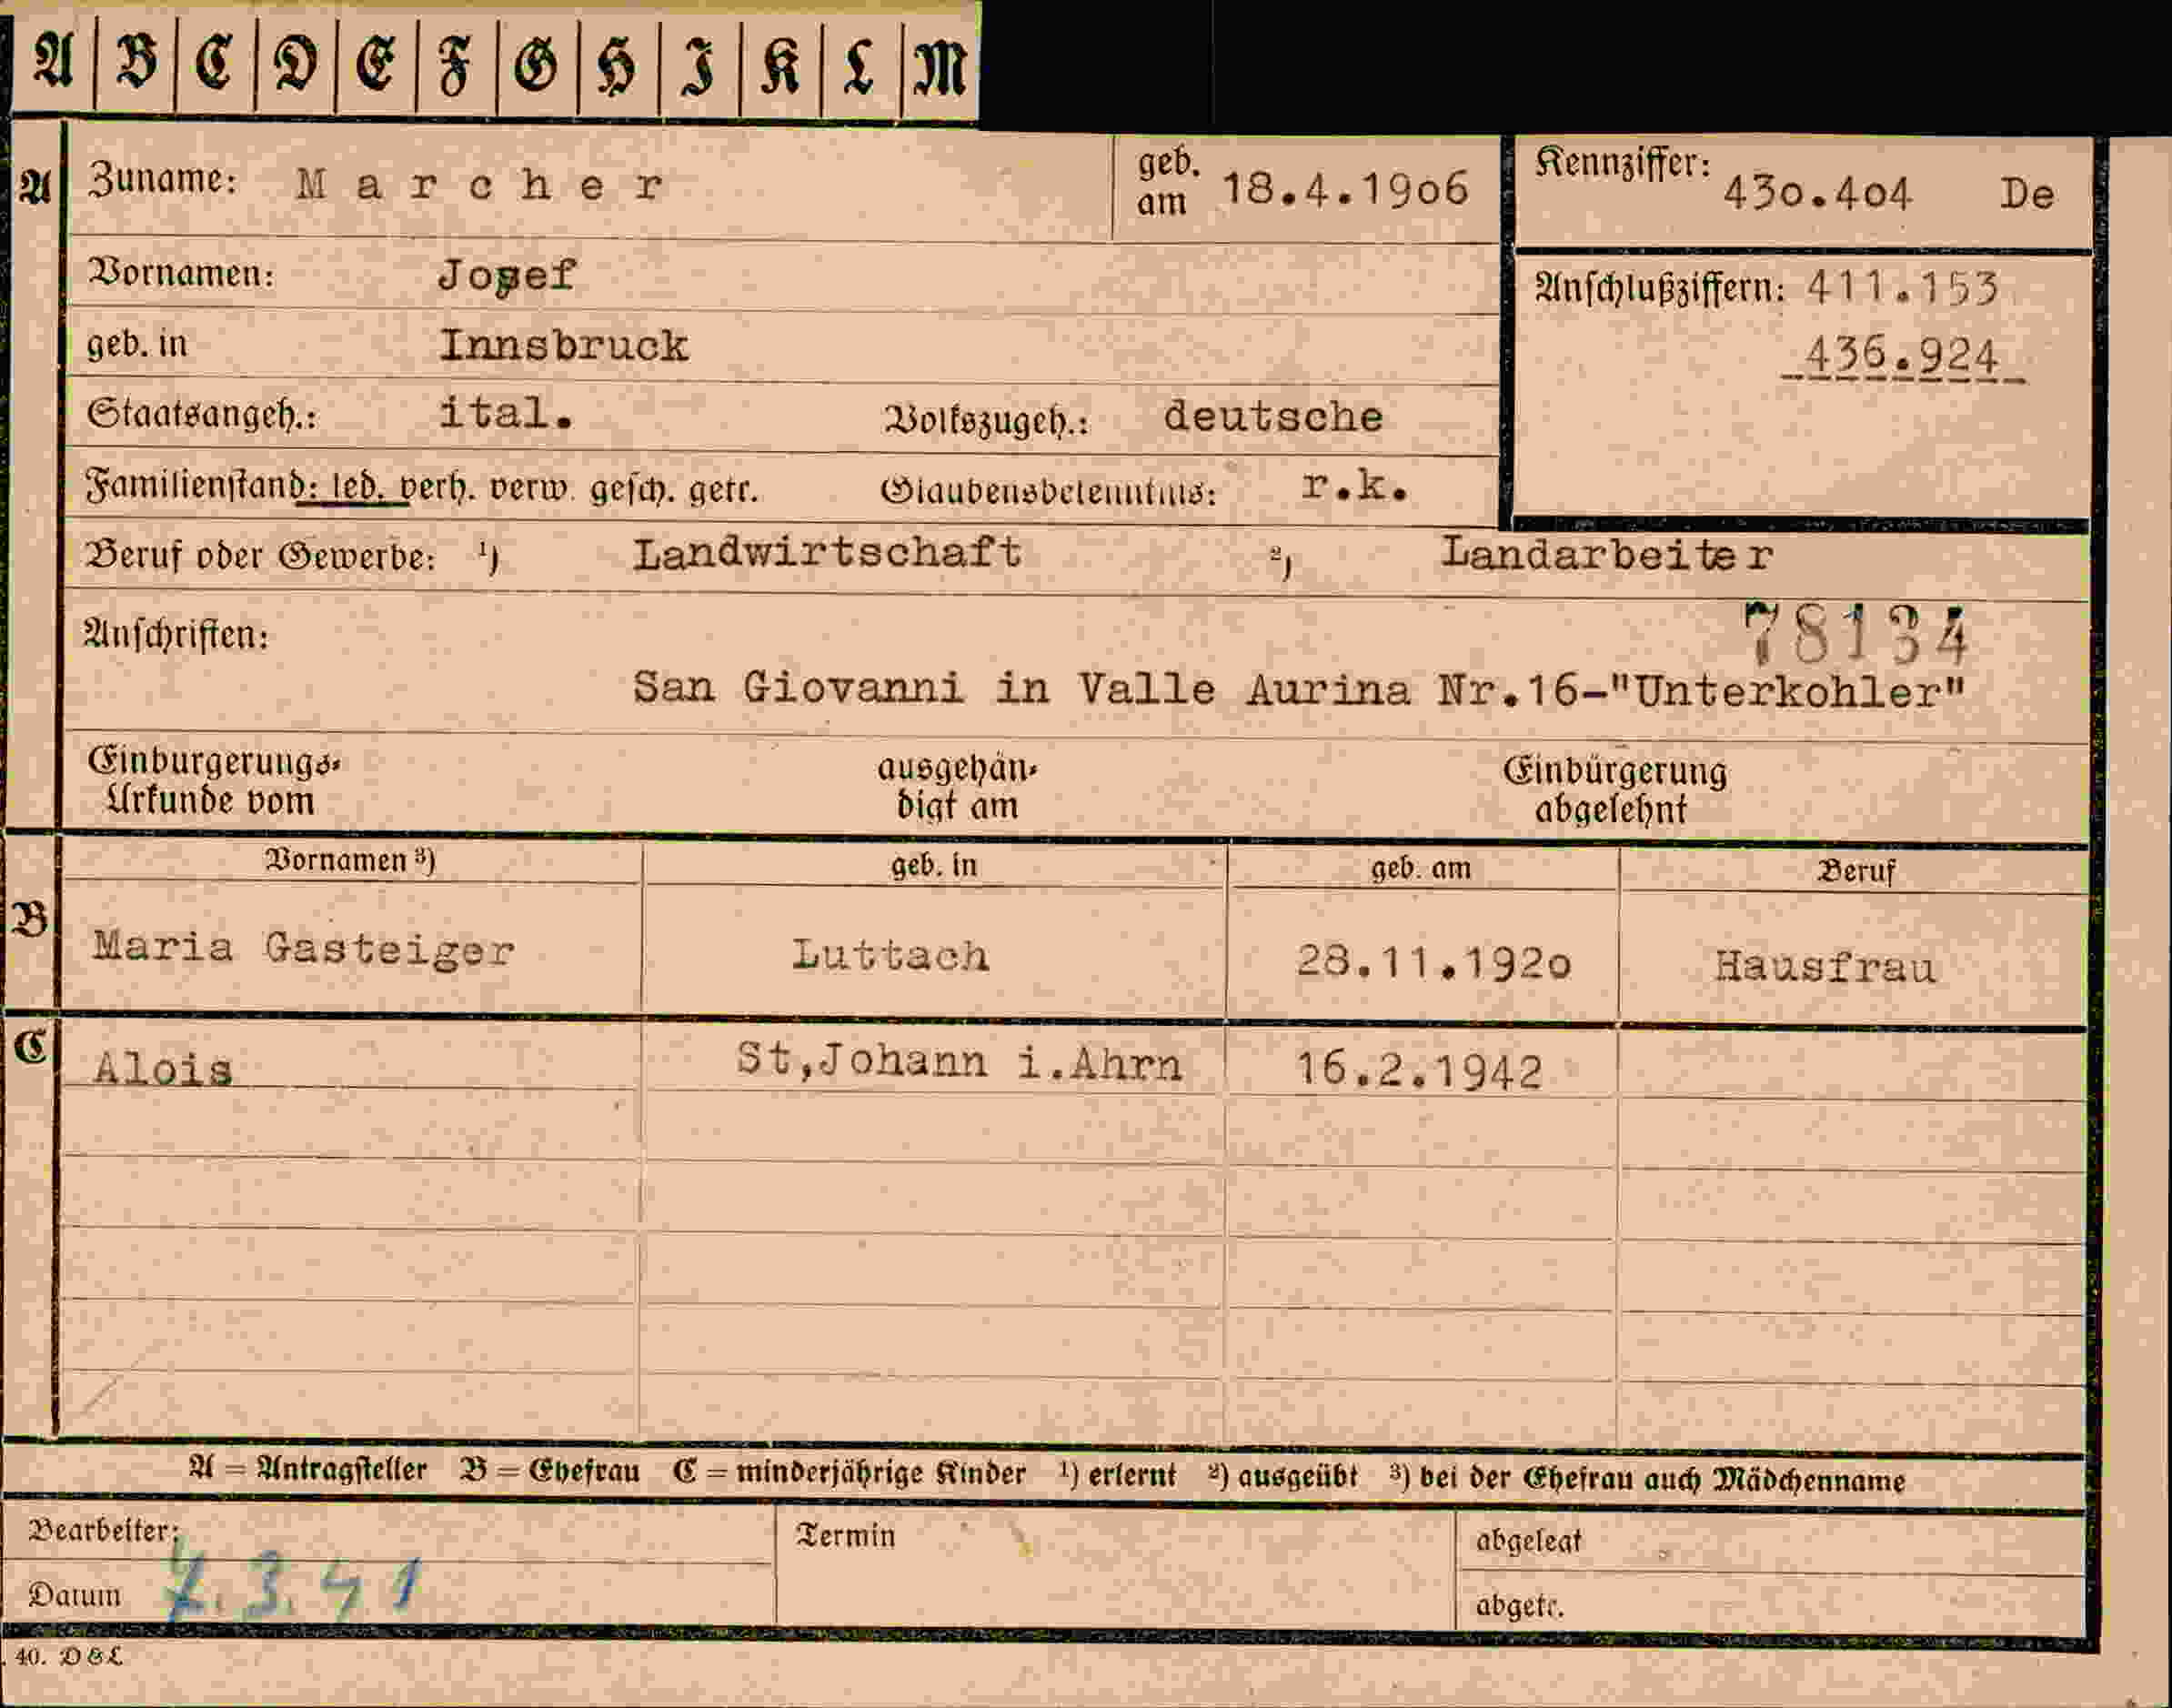 A B C D E F G H I K L M
A Zuname: Marcher geb. am 18.4.1906 Kennziffer: 430.404 De
Vornamen: Josef Anschlußziffern: 411.153
geb. in Innsbruck 436.924
Staatsangeh.: ital. Volkszugeh.: deutsche
Familienstand: led. verh. verw. gesch. getr. Glaubensbekenntnis: r.k.
Beruf oder Gewerbe: ¹) Landwirtschaft ²) Landarbeiter
Anschriften: 78134
San Giovanni in Valle Aurina Nr.16-"Unterkohler"
Einbürgerungs- ausgehän- Einbürgerung
Urkunde vom digt am abgelehnt
Vornamen ³) geb. in geb. am Beruf
B Maria Gasteiger Luttach 28.11.1920 Hausfrau
C Alois St,Johann i.Ahrn 16.2.1942
A = Antragsteller B = Ehefrau C = minderjährige Kinder ¹) erlernt ²) ausgeübt ³) bei der Ehefrau auch Mädchenname
Bearbeiter: Termin abgelegt
Datum 7.3.41 abgetr.
40. D&L